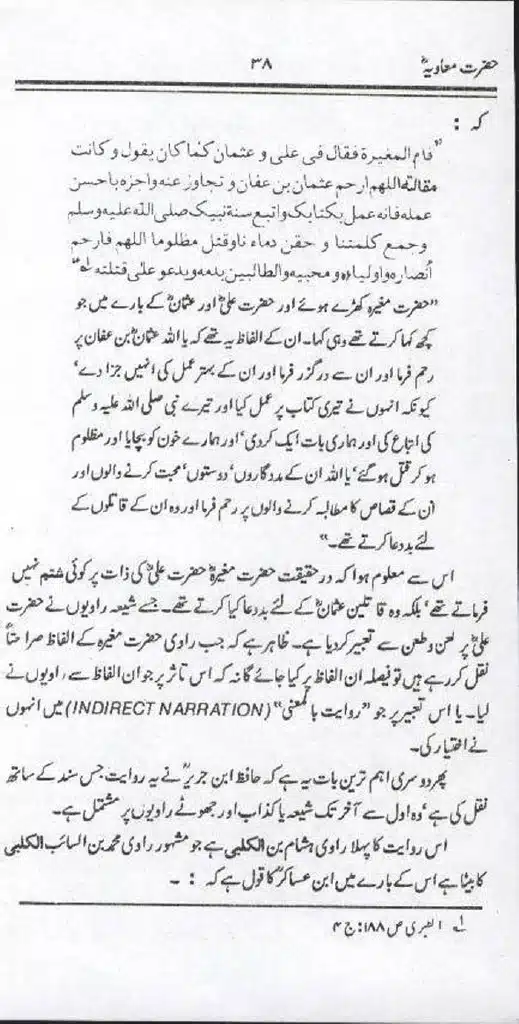 حضرت معاویہؓ ۳۸
کہ :
”قام المغیرة فقال فی علی و عثمان کما کان یقول و کانت
مقالته اللهم ارحم عثمان بن عفان و تجاوز عنه واجزه باحسن
عمله فانه عمل بکتابک واتبع سنة نبیک صلی الله علیه وسلم
و جمع کلمتنا و حقن دماء ناوقتل مظلوما اللهم فارحم
أنصاره واولیاءه ومحبیه والطالبین بدمه ویدعو علی قتلته لہ“
”حضرت مغیرہ کھڑے ہوئے اور حضرت علیؓ اور عثمانؓ کے بارے میں جو
کچھ کہا کرتے تھے وہی کہا۔ ان کے الفاظ یہ تھے کہ یا اللہ عثمانؓ بن عفان پر
رحم فرما اور ان سے درگزر فرما اور ان کے بہتر عمل کی انہیں جزا دے‘
کیونکہ انہوں نے تیری کتاب پر عمل کیا اور تیرے نبی صلی اللہ علیہ وسلم
کی اتباع کی اور ہماری بات ایک کردی‘ اور ہمارے خون کو بچایا اور مظلوم
ہو کر قتل ہو گئے‘ یا اللہ ان کے مددگاروں‘ دوستوں‘ محبت کرنے والوں اور
ان کے قصاص کا مطالبہ کرنے والوں پر رحم فرما اور وہ ان کے قاتلوں کے
لئے بددعا کرتے تھے۔“
اس سے معلوم ہوا کہ درحقیقت حضرت مغیرہؓ حضرت علیؓ کی ذات پر کوئی شتم نہیں
فرماتے تھے‘ بلکہ وہ قاتلین عثمانؓ کے لئے بددعا کیا کرتے تھے۔ جسے شیعہ راویوں نے حضرت
علیؓ پر لعن و طعن سے تعبیر کر دیا ہے۔ ظاہر ہے کہ جب راوی حضرت مغیرہ کے الفاظ صراحتاً
نقل کر رہے ہیں تو فیصلہ ان الفاظ پر کیا جائے گا نہ کہ اس تاثر پر جو ان الفاظ سے راویوں نے
لیا۔ یا اس تعبیر پر جو ”روایت بالمعنی“ (INDIRECT NARRATION) میں انہوں
نے اختیار کی۔
پھر دوسری اہم ترین بات یہ ہے کہ حافظ ابن جریرؒ نے یہ روایت جس سند کے ساتھ
نقل کی ہے‘ وہ اول سے آخر تک شیعہ یا کذاب اور جھوٹے راویوں پر مشتمل ہے۔
اس روایت کا پہلا راوی ہشام بن الکلبی ہے جو مشہور راوی محمد بن السائب الکلبی
کا بیٹا ہے اس کے بارے میں ابن عساکرؒ کا قول ہے کہ : ۔
لہ الطبری ص ۱۸۸: ج ۴